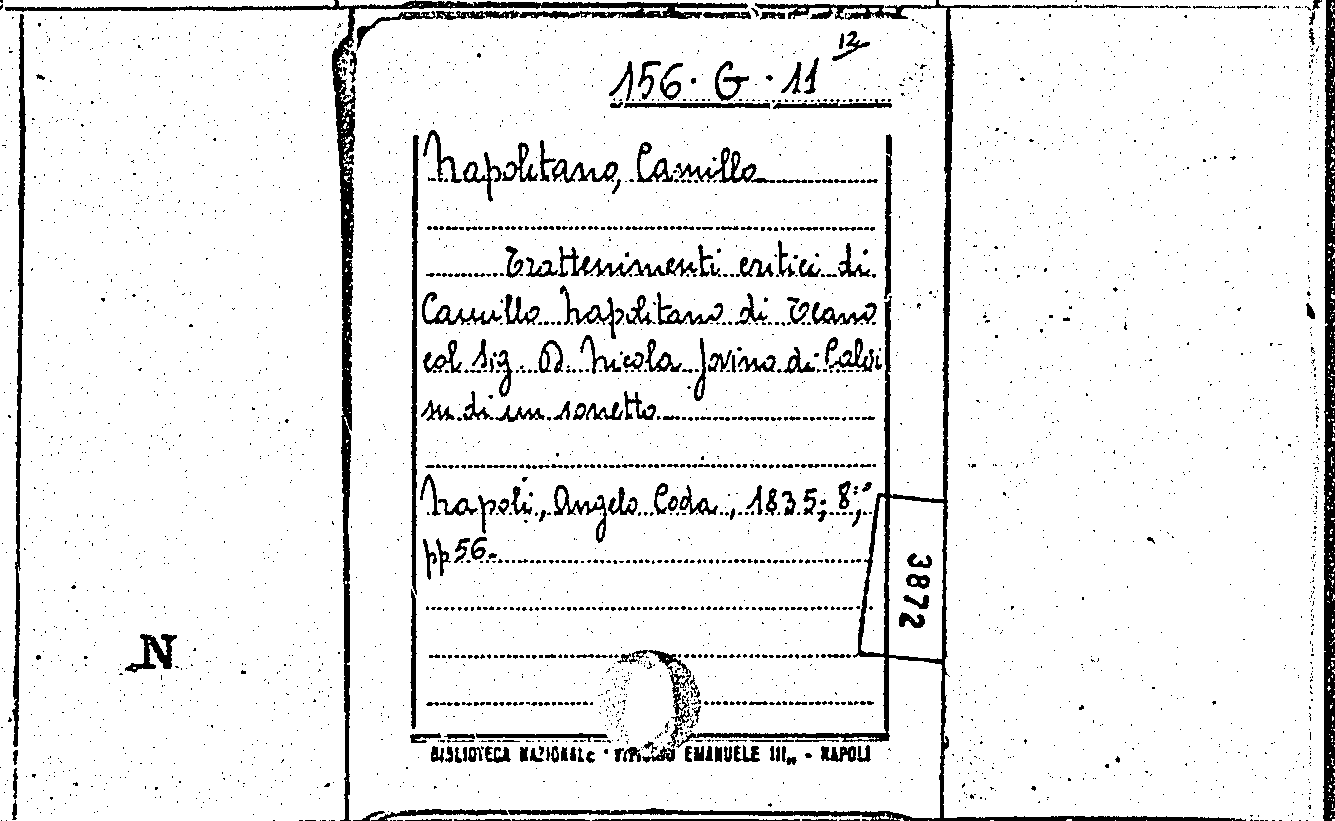 156. G. 11 12
Napolitano, Camillo
Trattenimenti critici di
Camillo Napolitano di Teano
col Sig. D. Nicola Jovino di Calvi
su di un sonetto
Napoli, Angelo Coda, 1835; 8°;
pp 56.
3872
N
BIBLIOTECA NAZIONALE "VITTORIO EMANUELE III„ - NAPOLI